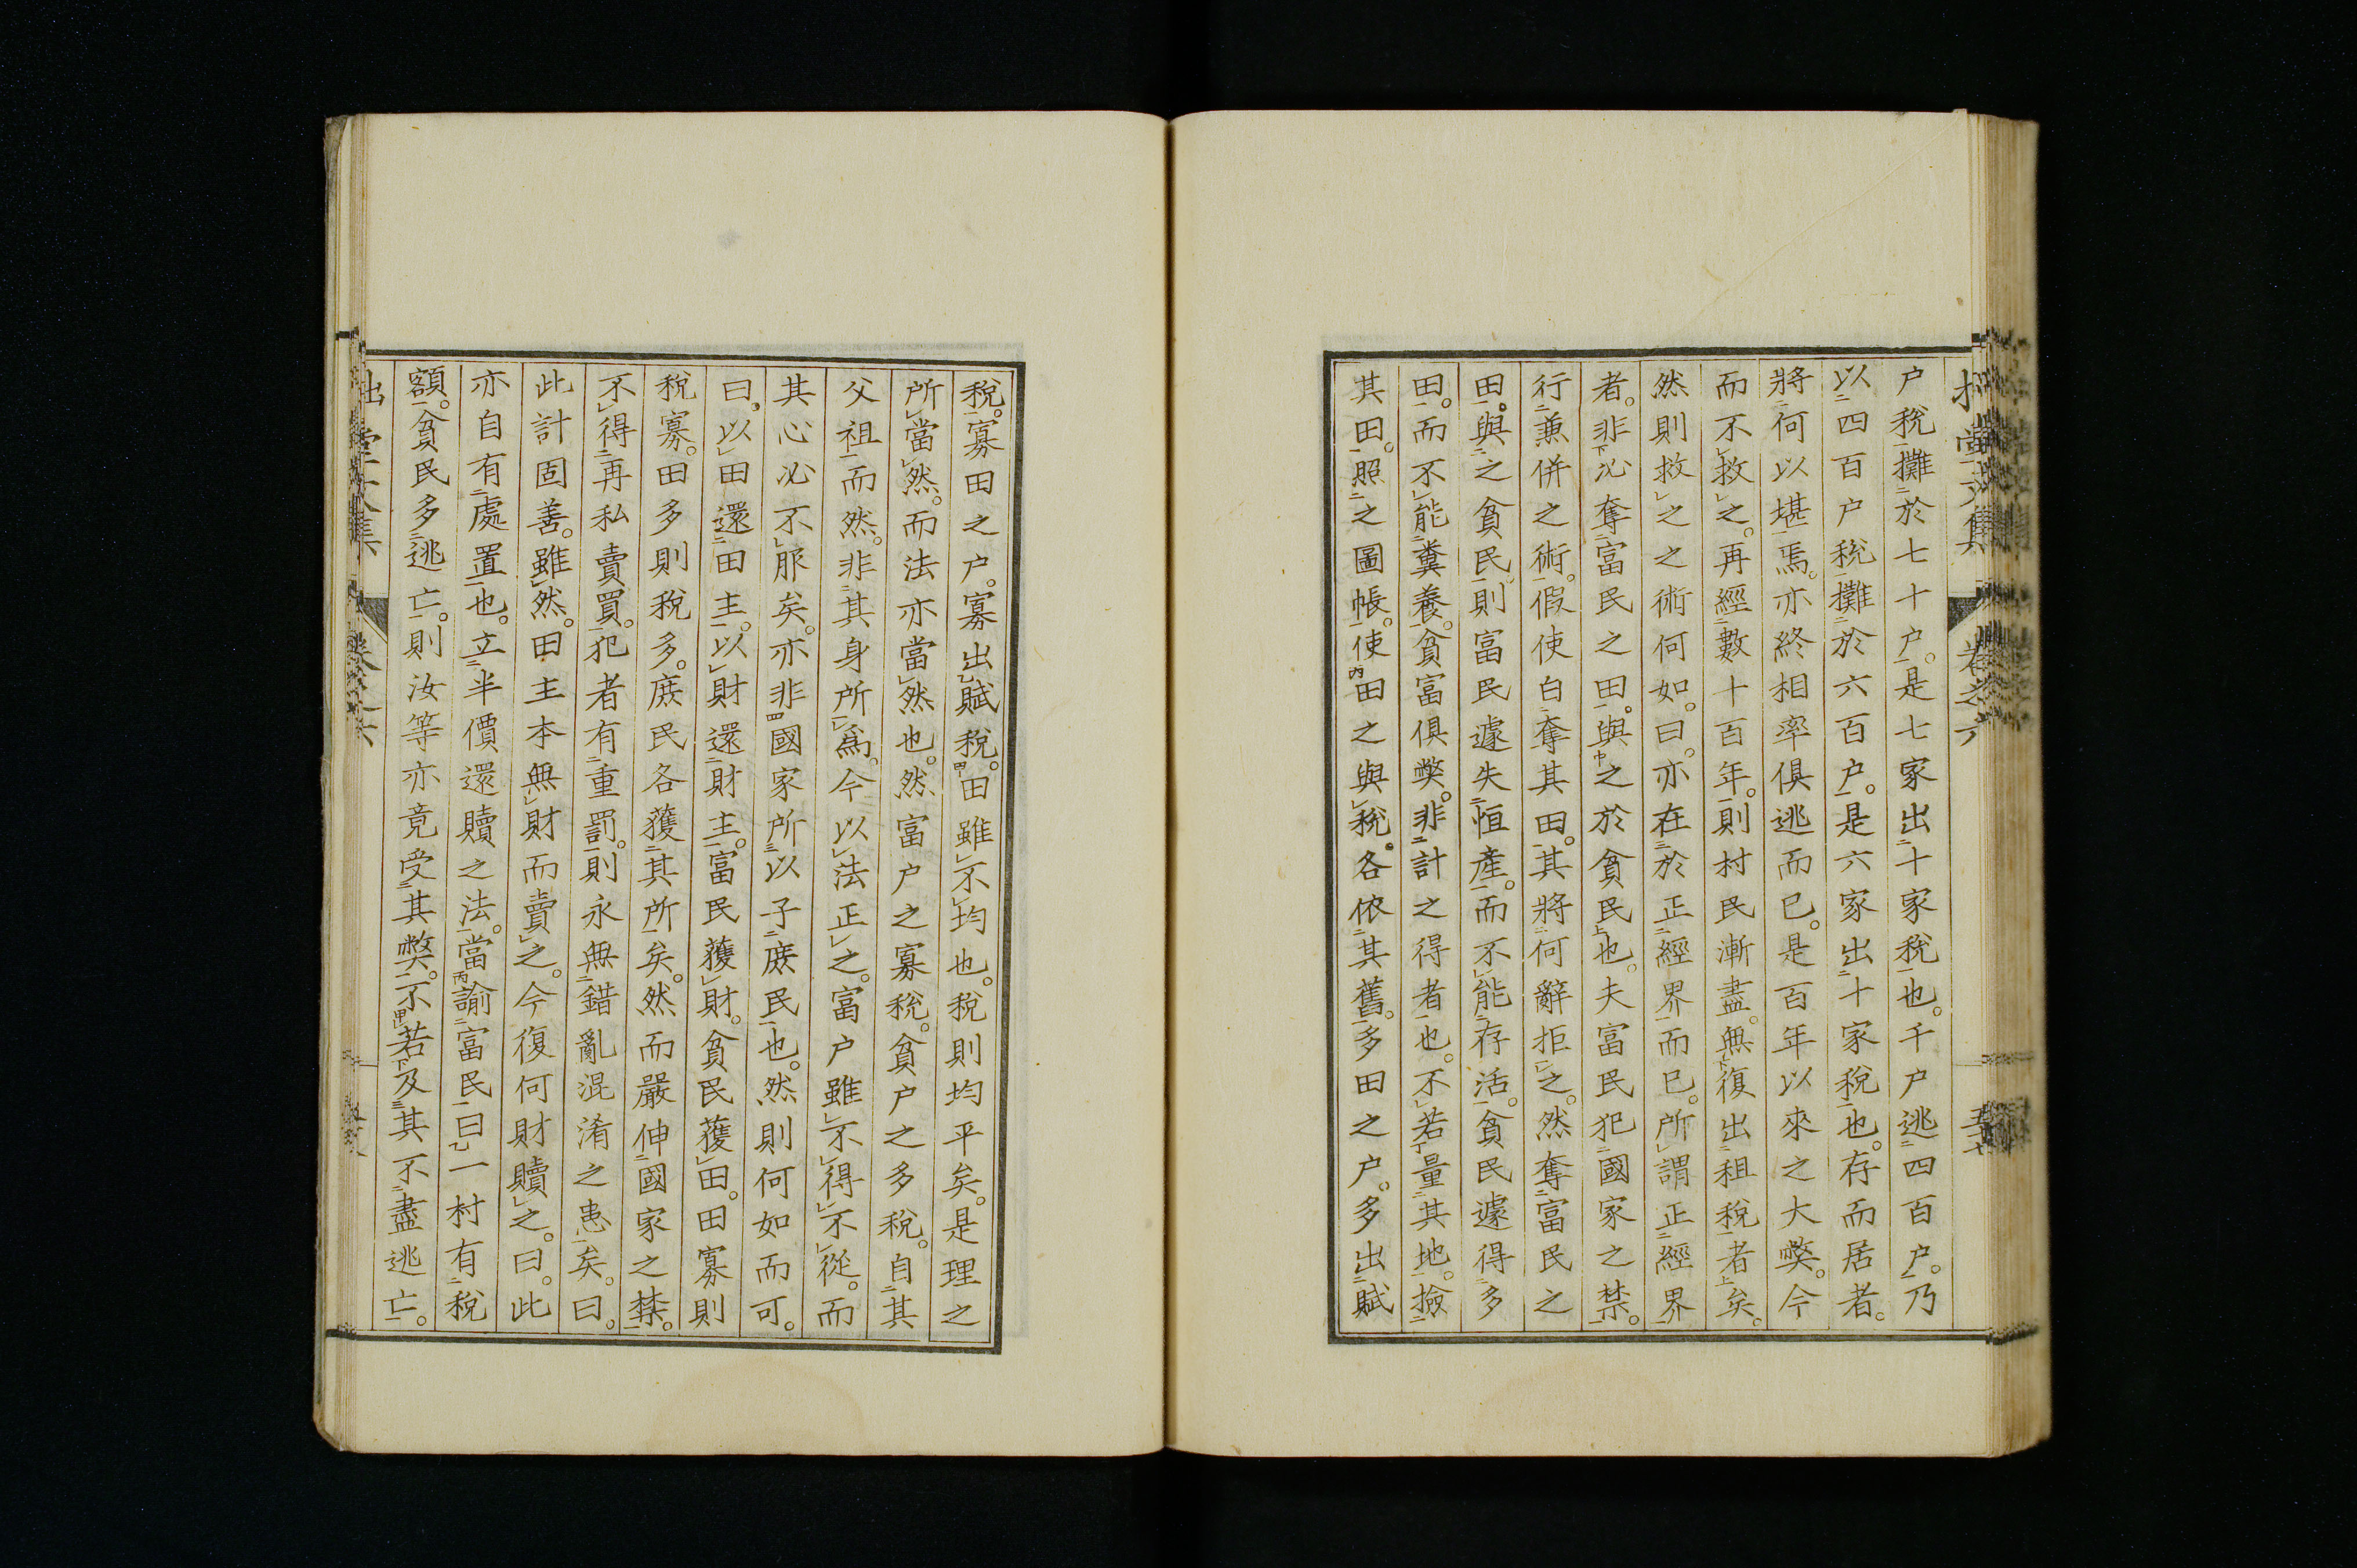 戶稅攤於七十戶。是七家出十家稅也。千戶逃四百戶。乃
以四百戶稅攤於六百戶。是六家出十家稅也。存而居者。
將何以堪焉。亦終相率俱逃而已。是百年以來之大弊。今
而不救之。再經數十百年。則村民漸盡。無復出租稅者矣。
然則救之之術何如。曰。亦在於正經界而已。所謂正經界
者。非必奪富民之田。與之於貧民也。夫富民犯國家之禁。
行兼併之術。假使白奪其田。其將何辭拒之。然奪富民之
田。與之貧民。則富民遽失恒產。而不能存活。貧民遽得多
田。而不能糞養。貧富俱弊。非計之得者也。不若量其地。撿
其田。照之圖帳。使田之與稅。各依其舊。多田之戶。多出賦
稅。寡田之戶。寡出賦稅。田雖不均也。稅則均平矣。是理之
所當然。而法亦當然也。然富戶之寡稅。貧戶之多稅。自其
父祖而然。非其身所爲。今以法正之。富戶雖不得不從。而
其心必不服矣。亦非國家所以子庶民也。然則何如而可。
曰。以田還田主。以財還財主。富民獲財。貧民獲田。田寡則
稅寡。田多則稅多。庶民各獲其所矣。然而嚴伸國家之禁。
不得再私賣買。犯者有重罰。則永無錯亂混淆之患矣。曰。
此計固善。雖然。田主本無財而賣之。今復何財贖之。曰。此
亦自有處置也。立半價還贖之法。當諭富民曰。一村有稅
額。貧民多逃亡。則汝等亦竟受其弊。不若及其不盡逃亡。